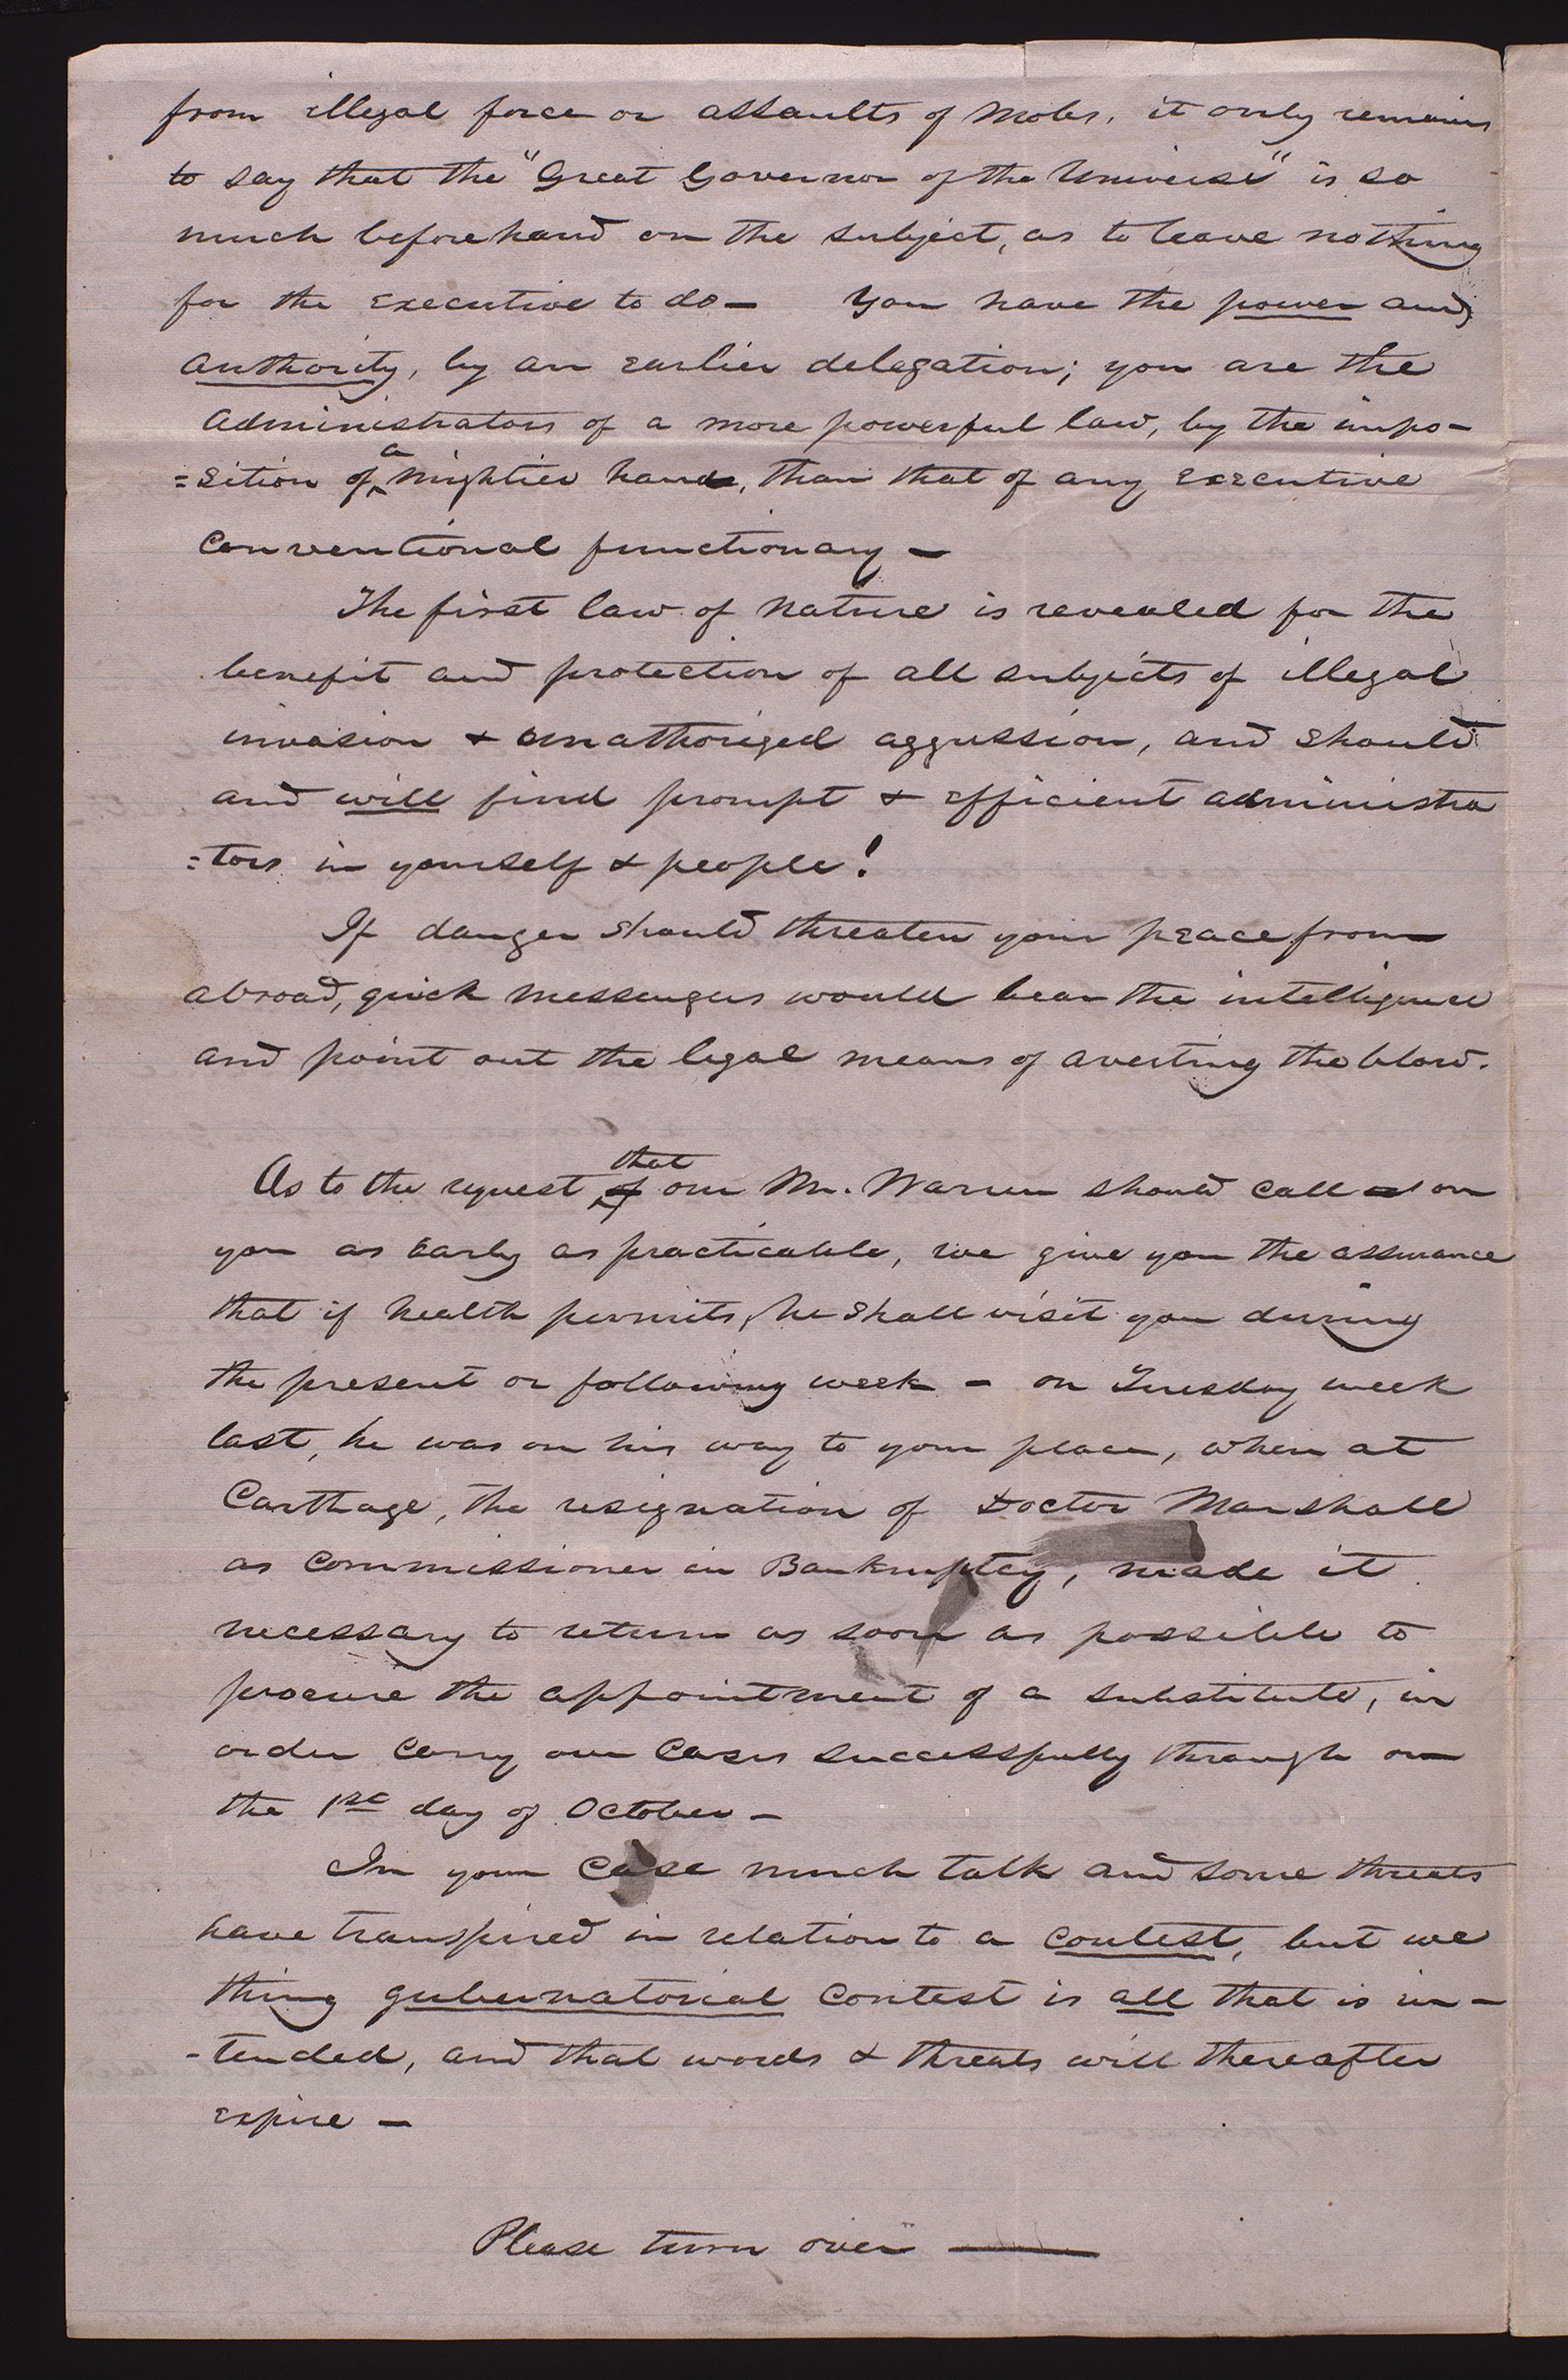 from illegal force or assaults of mobs, it only remains
to say that the "Great Governor of the Universe" is so
much beforehand on the subject, as to leave nothing
for the Executive to do — You have the power and
authority, by an earlier delegation; you are the
administrators of a more powerful law, by the impo-
=sition of a mightier hand, than that of any Executive
Conventional functionary —
The first law of Nature is revealed for the
benefit and protection of all subjects of illegal
invasion & unathorized aggression, and should
and will find prompt & efficient administra
=tors in yourself & people!
If danger should threaten your peace from
abroad, quick messengers would bear the intelligence
and point out the legal means of averting the blow.
As to the request of that our Mr. Warren should call on
you as Early as practicable, we give you the assurance
that if health permits, he shall visit you during
the present or following week — on Tuesday week
last, he was on his way to your place, when at
Carthage, the resignation of Doctor Marshall
as Commissioner in Bankruptcy, made it
necessary to return as soon as possible to
procure the appointment of a substitute, in
order carry our Cases successfully through on
the 1st day of October —
In your Case much talk and some threats
have transpired in relation to a contest, but we
thing gubernatorial Contest is all that is in-
-tended, and that words & threats will thereafter
expire —
Please turn over —